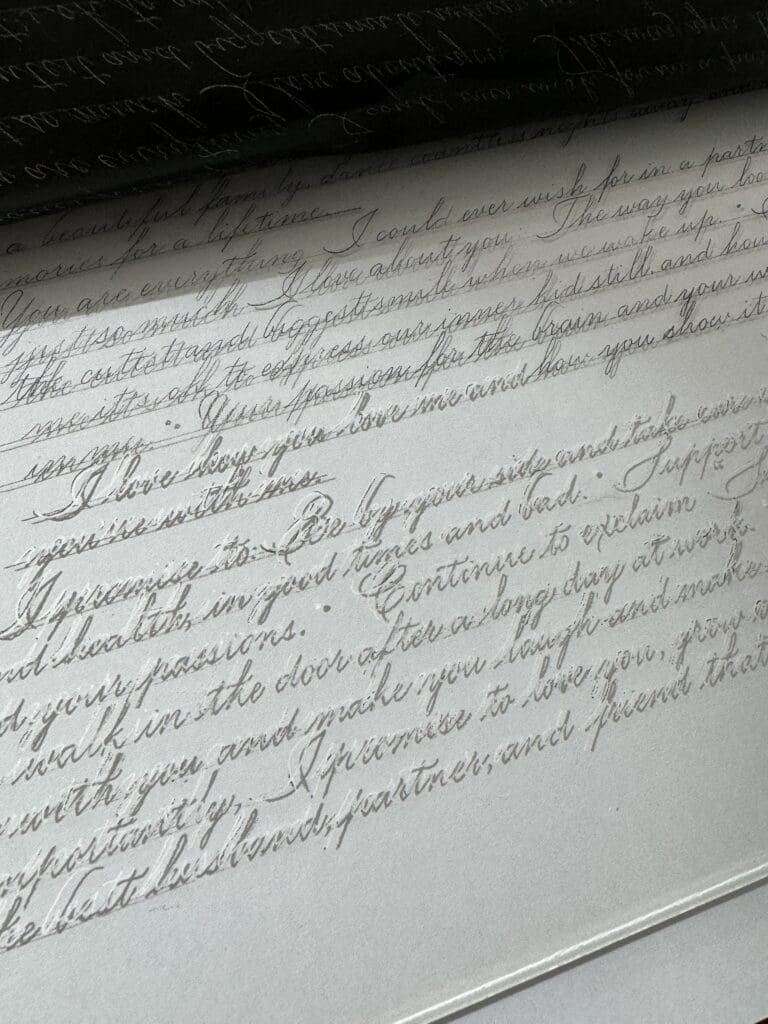 a beautiful family, dance countless nights away and
mories for a lifetime.
You are everything I could ever wish for in a partn
just so much I love about you. The way you loo
the cutest and biggest smile when we wake up. •
me its ok to express our inner kid still and how
in me. • Your passion for the brain and your w
I love how you love me and how you show it
you're with me.
I promise to: Be by your side and take care
nd health, in good times and bad. • Support
d your passions. • Continue to exclaim "
walk in the door after a long day at work.
with you and make you laugh and make
mportantly, I promise to love you, grow
he best husband, partner, and friend that